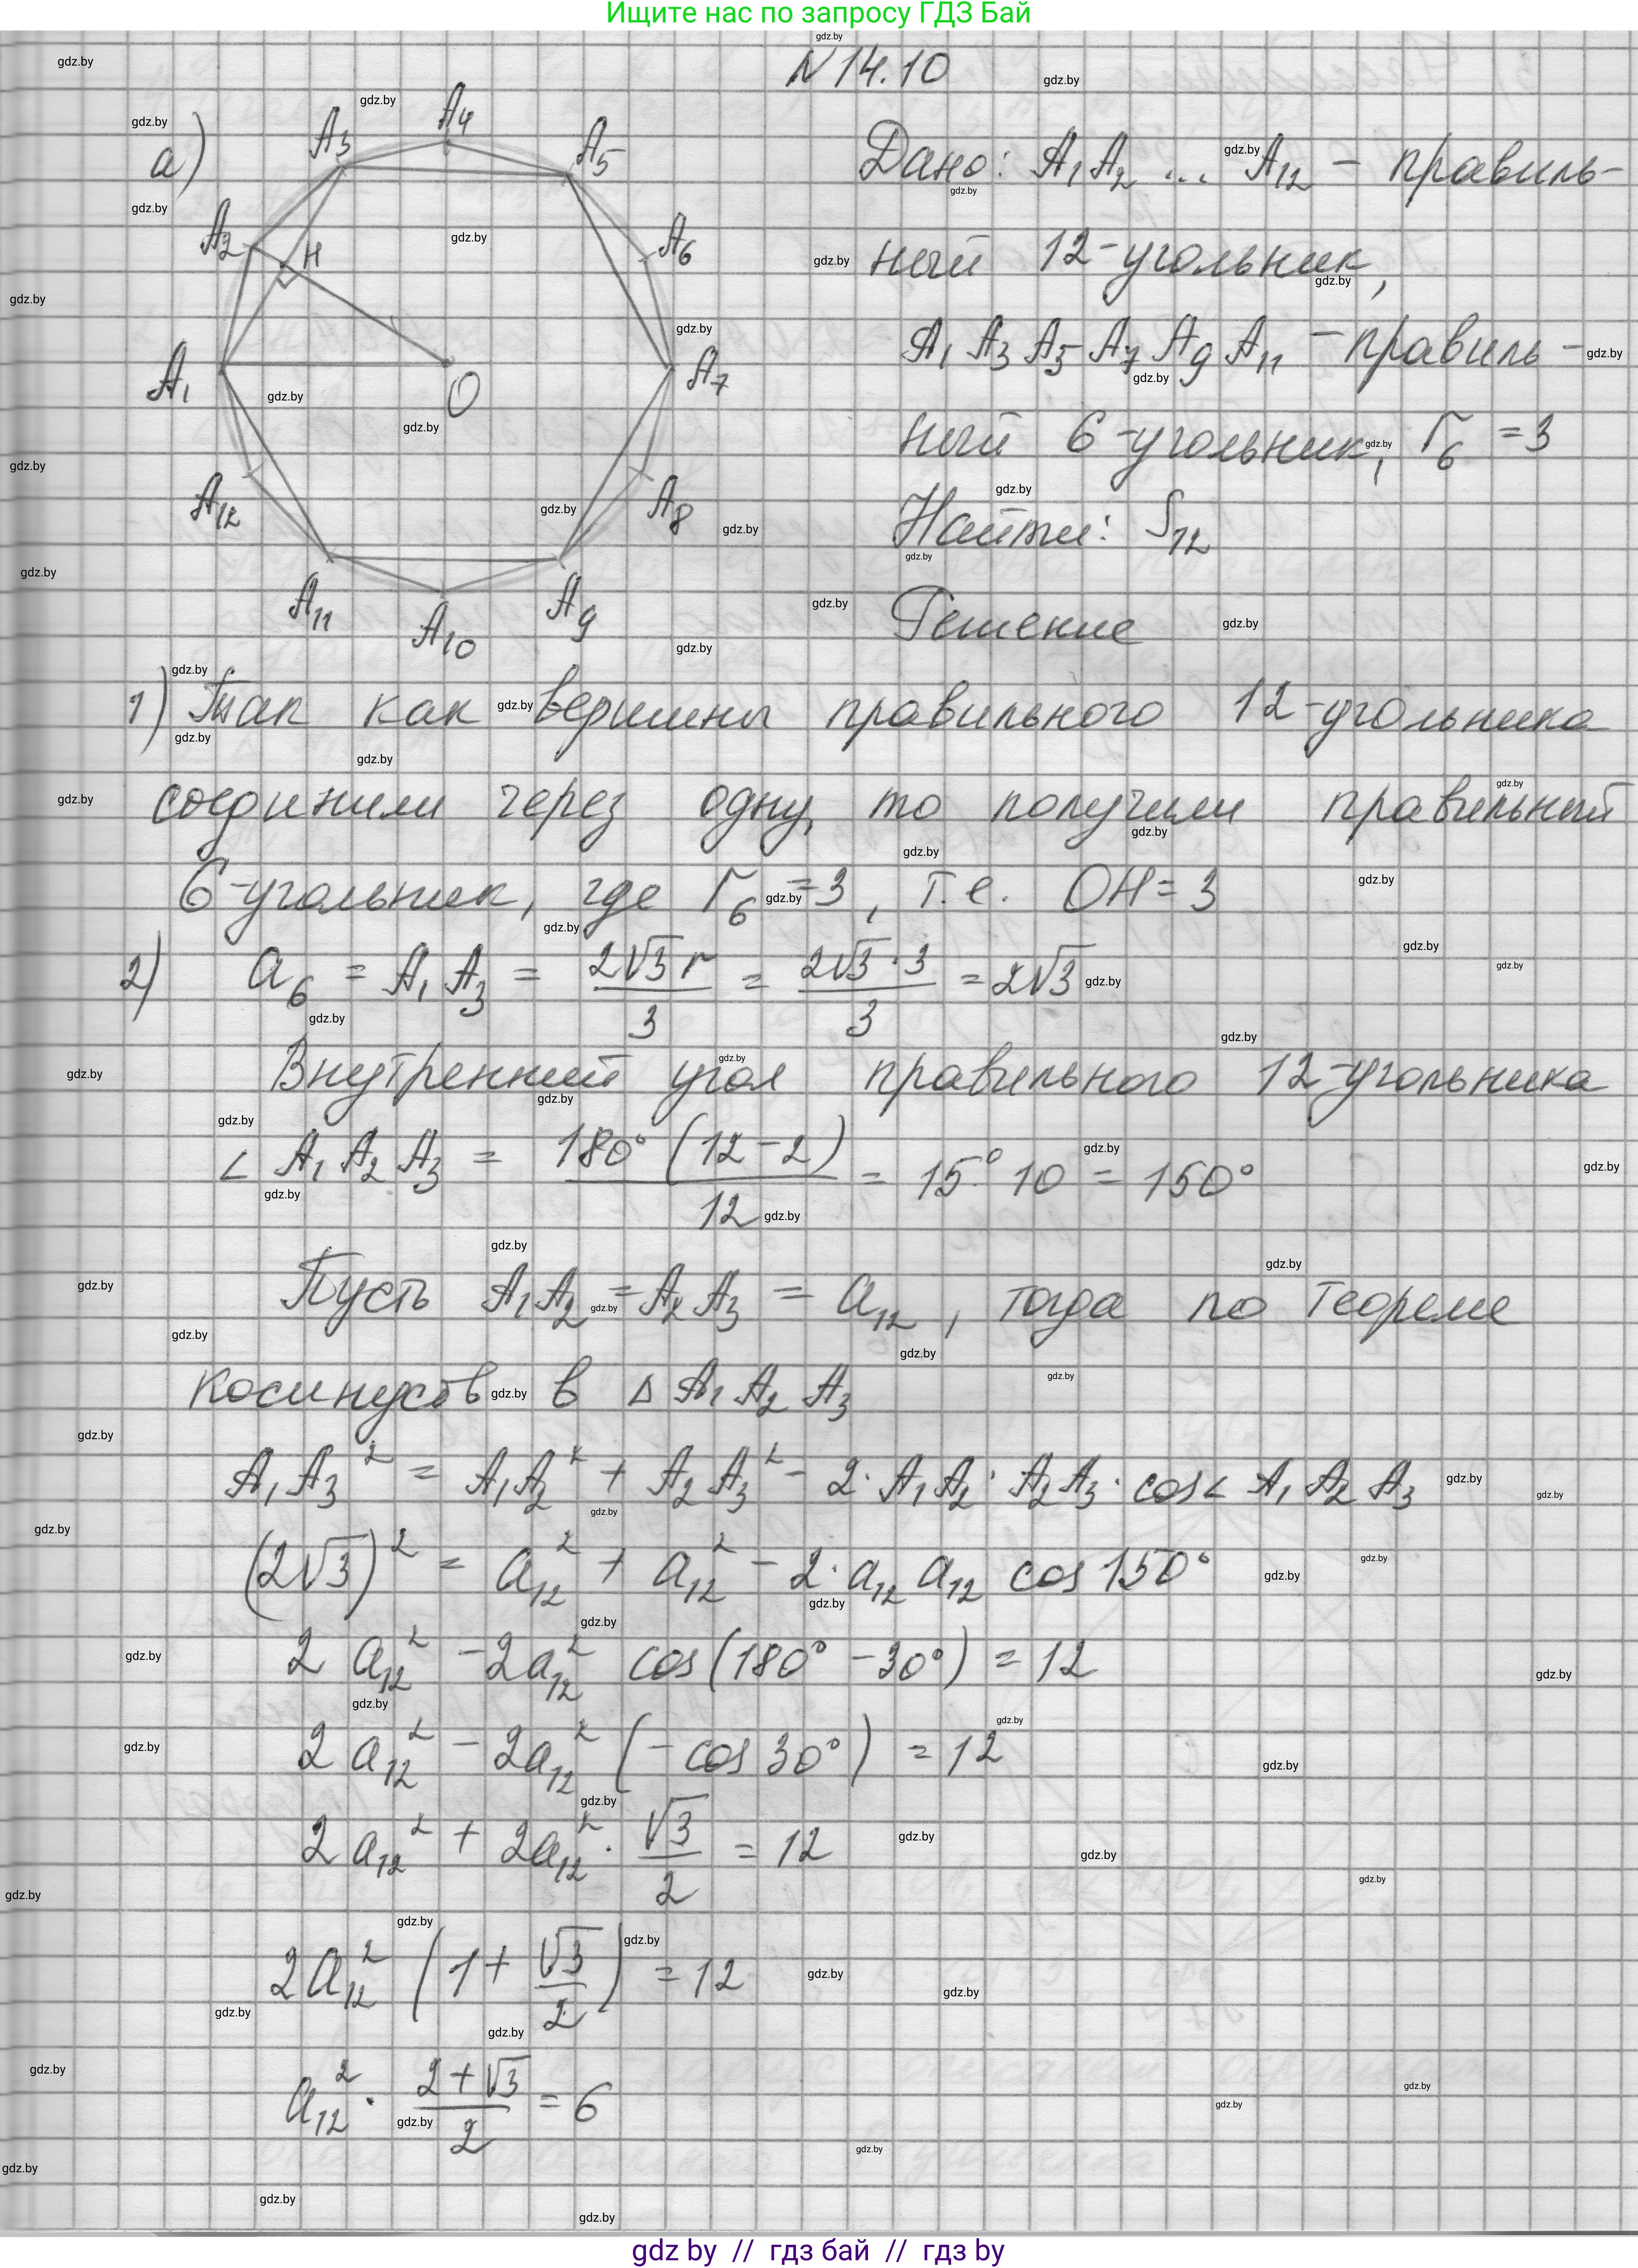 Ищите нас по запросу ГДЗ Бай
N 14.10
а)
A₁ A₂ A₃ A₄ A₅ A₆ A₇ A₈ A₉ A₁₀ A₁₁ A₁₂ H O
Дано: A₁A₂ ... A₁₂ – правиль-
ный 12-угольник,
A₁A₃A₅A₇A₉A₁₁ – правиль-
ный 6-угольник, r₆ = 3
Найти: S₁₂
Решение
1) Так как вершины правильного 12-угольника
соединили через одну, то получили правильный
6-угольник, где r₆ = 3, т.е. OH = 3
2) a₆ = A₁A₃ = 2√3 r / 3 = 2√3 · 3 / 3 = 2√3
Внутренний угол правильного 12-угольника
∠ A₁A₂A₃ = 180° (12 – 2) / 12 = 15° · 10 = 150°
Пусть A₁A₂ = A₂A₃ = a₁₂, тогда по теореме
косинусов в △ A₁A₂A₃
A₁A₃² = A₁A₂² + A₂A₃² – 2 · A₁A₂ · A₂A₃ · cos∠ A₁A₂A₃
(2√3)² = a₁₂² + a₁₂² – 2 · a₁₂ a₁₂ cos 150°
2 a₁₂² – 2a₁₂² cos (180° – 30°) = 12
2 a₁₂² – 2a₁₂² (– cos 30°) = 12
2 a₁₂² + 2a₁₂² · √3 / 2 = 12
2a₁₂² (1 + √3 / 2) = 12
a₁₂² · (2 + √3) / 2 = 6
gdz by // гдз бай // gdz by